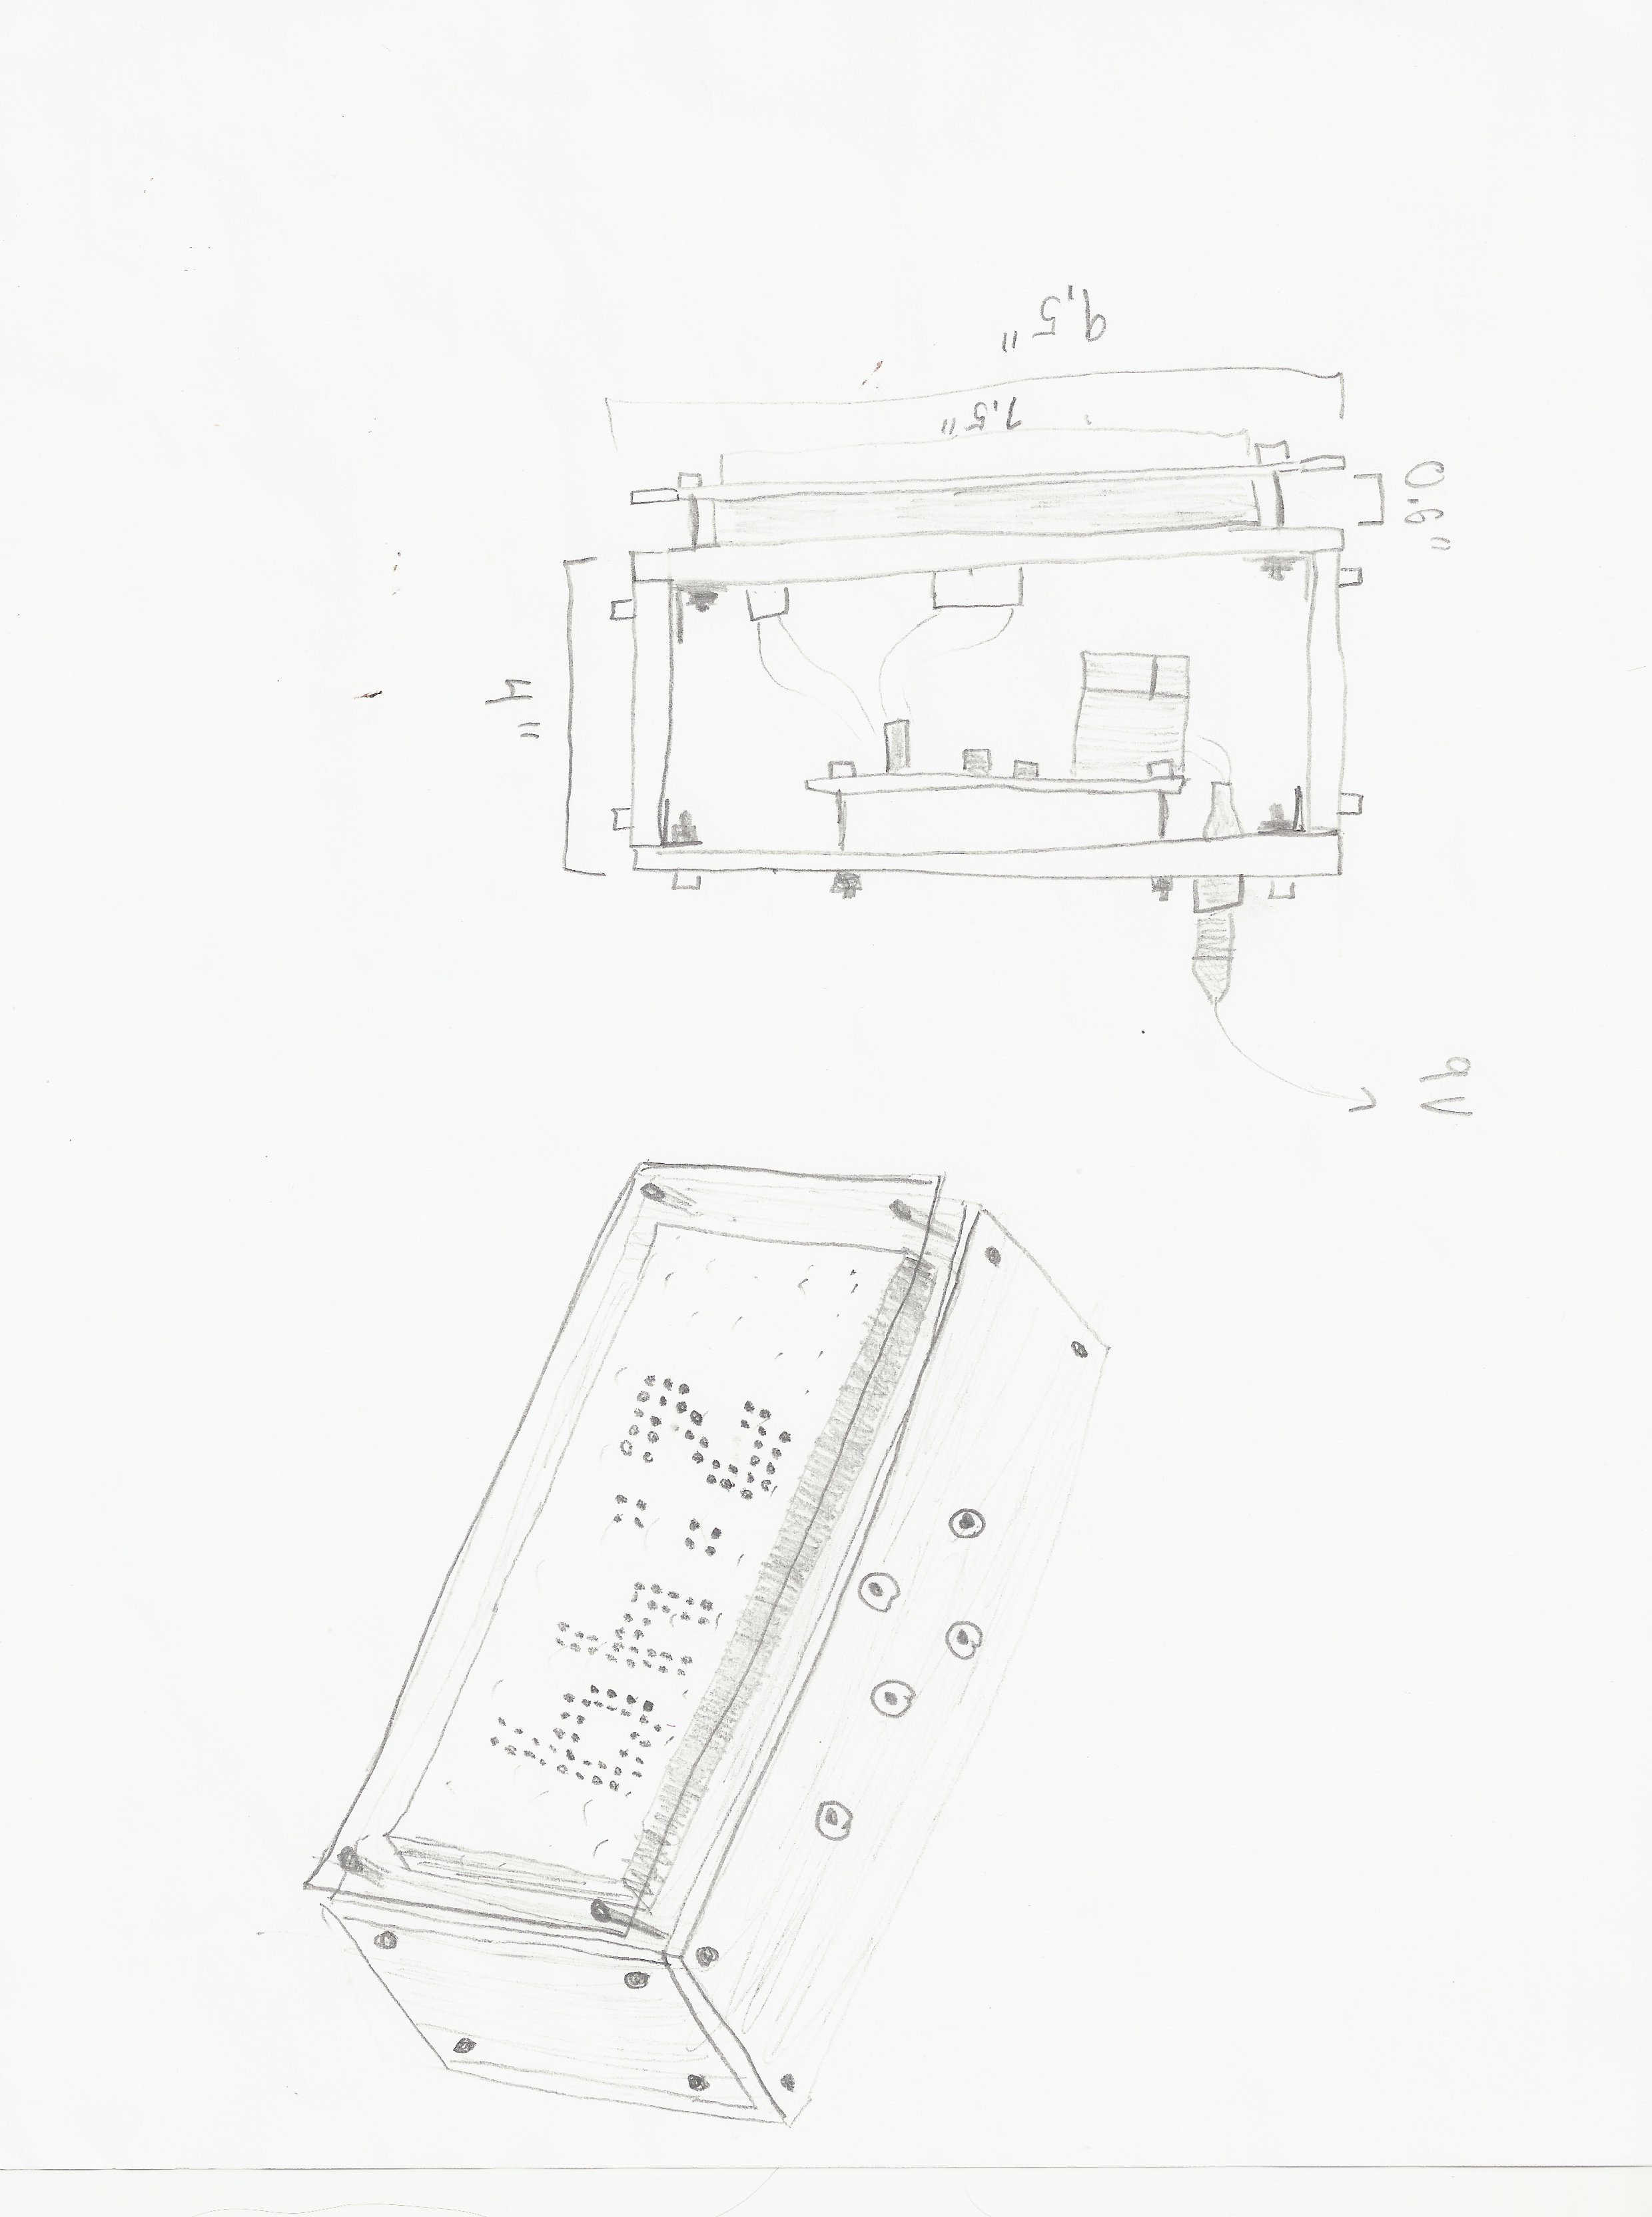 0.6"
9V
9,5"
7,5"
4"
2:49